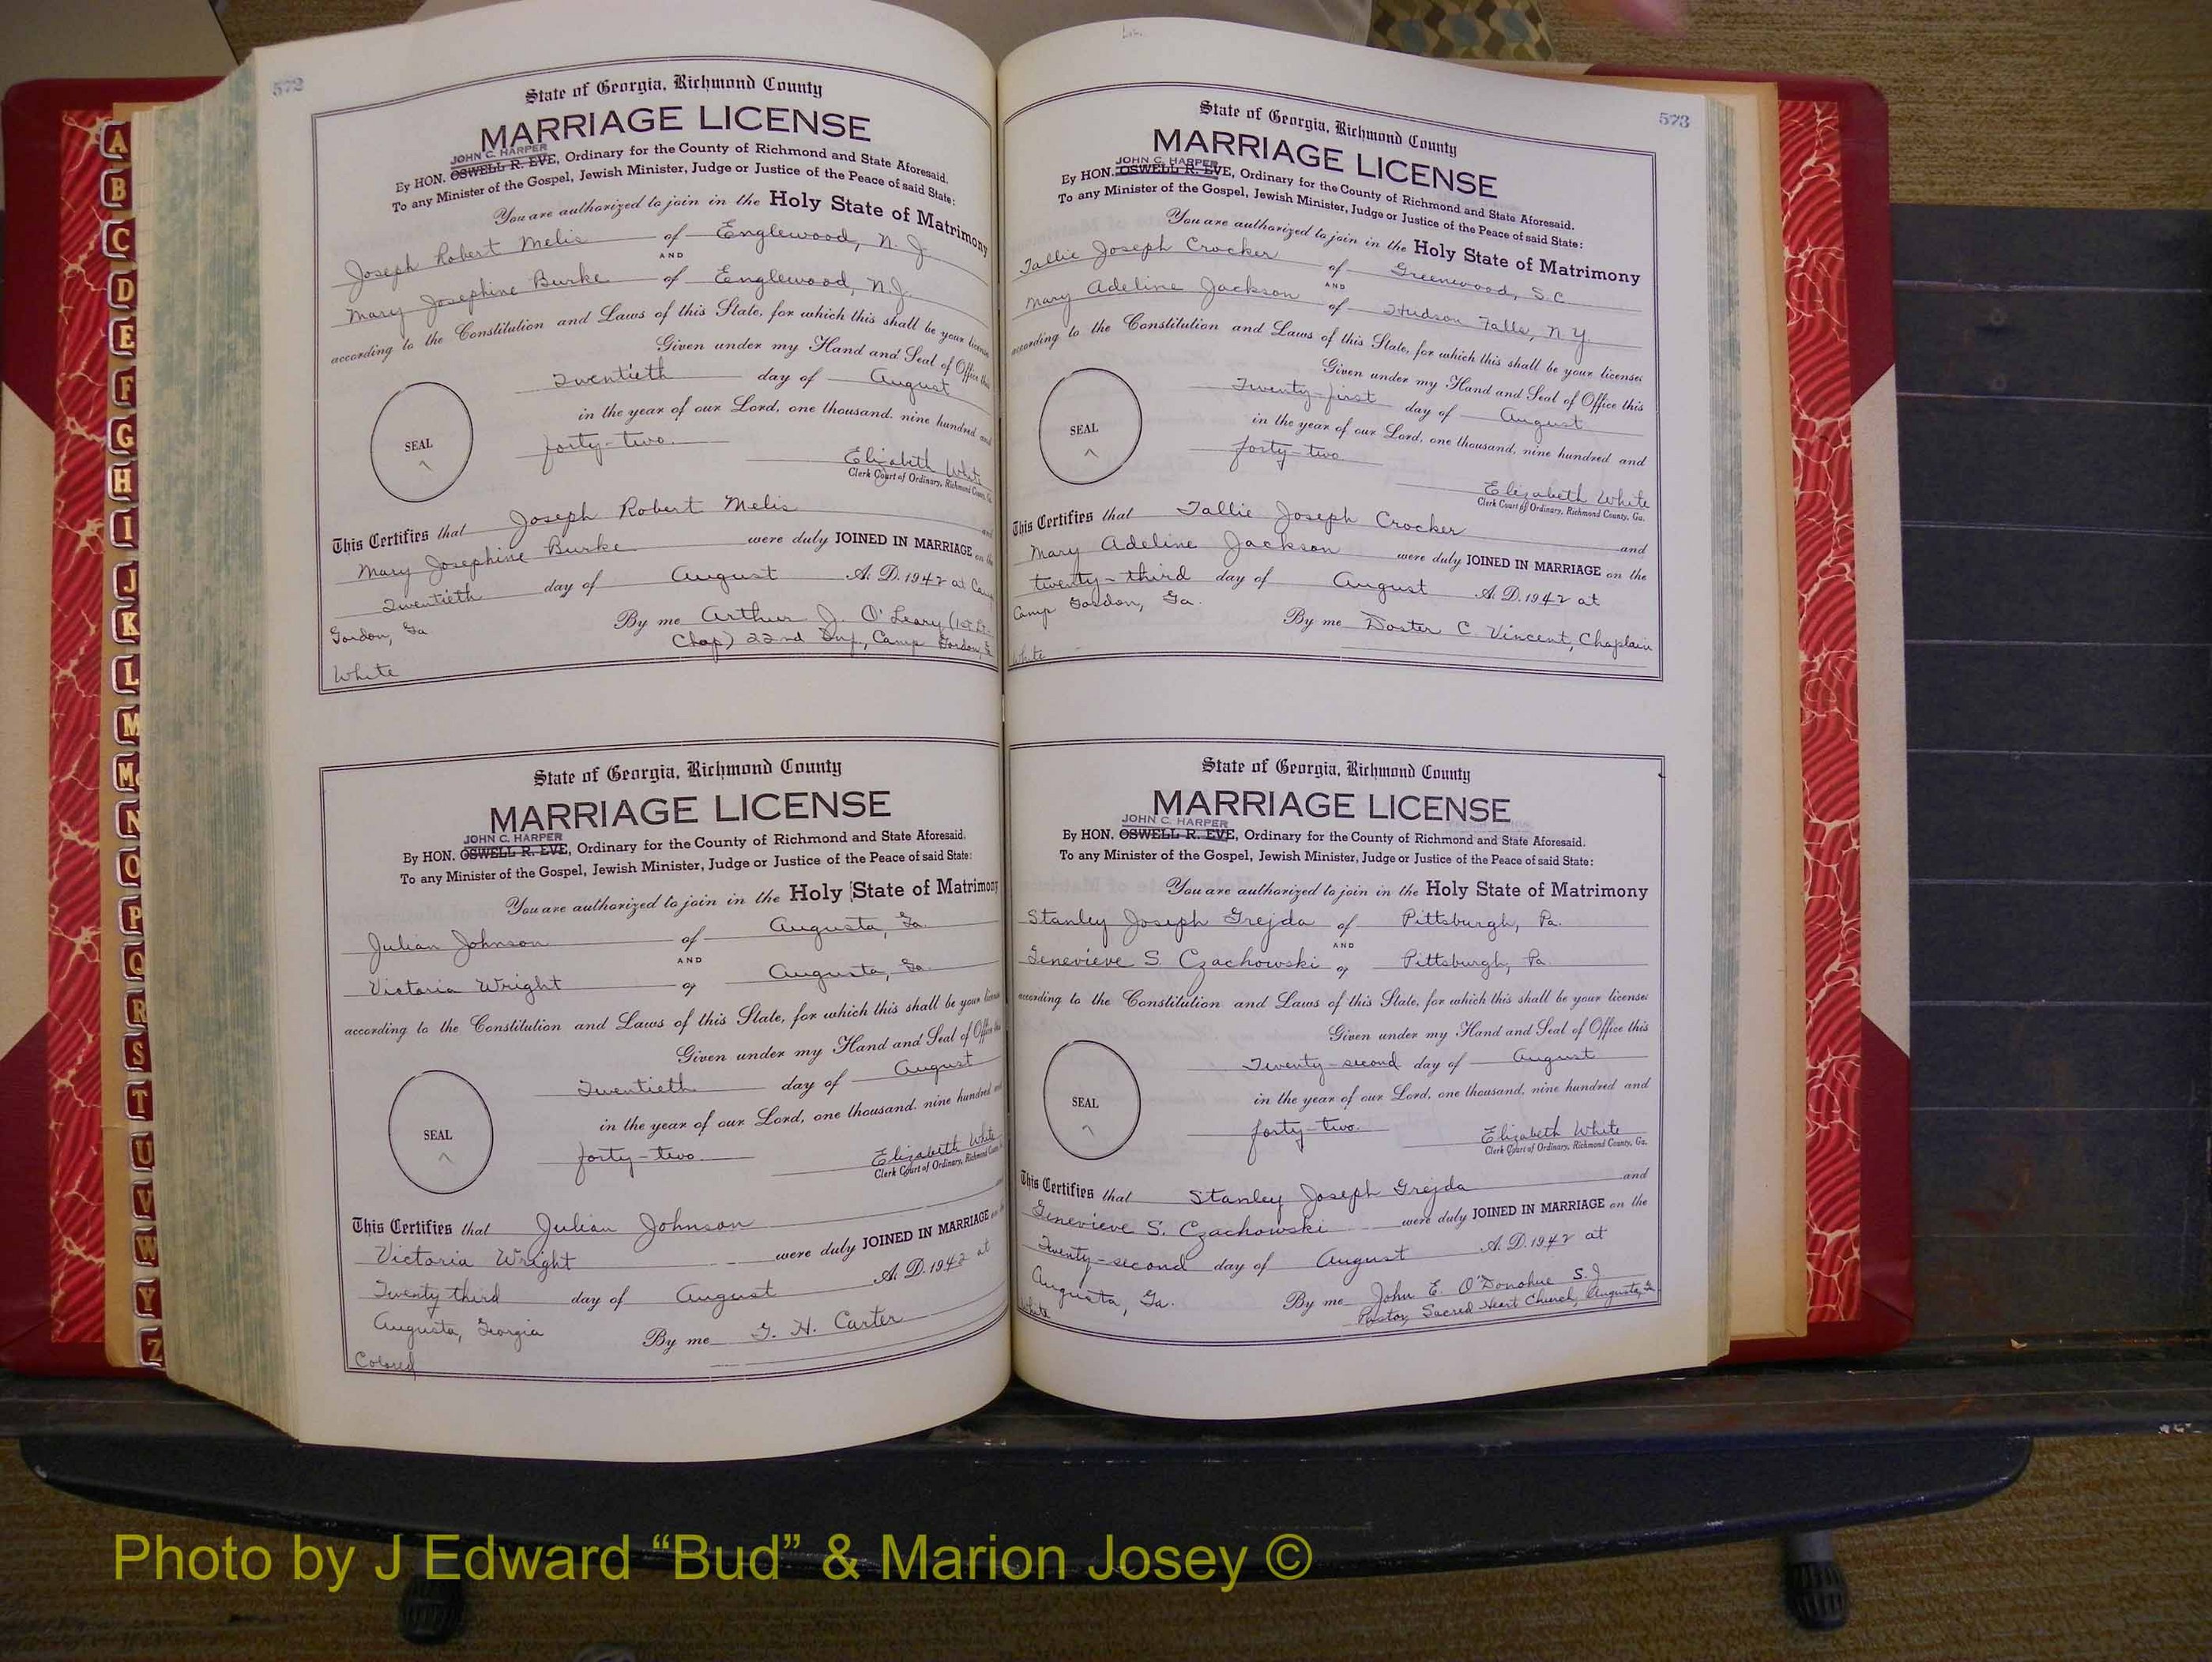 A
B
C
D
E
F
G
H
I
J
K
L
M
Mc
N
O
P
Q
R
S
T
U
V
W
Y
Z
572
State of Georgia, Richmond County
MARRIAGE LICENSE
JOHN C. HARPER
By HON. OSWELL R. EVE, Ordinary for the County of Richmond and State Aforesaid.
To any Minister of the Gospel, Jewish Minister, Judge or Justice of the Peace of said State:
You are authorized to join in the Holy State of Matrimony
Joseph Robert Melis of Englewood, N. J.
AND
Mary Josephine Burke of Englewood, N.J.
according to the Constitution and Laws of this State, for which this shall be your license
Given under my Hand and Seal of Office this
Twentieth day of August
in the year of our Lord, one thousand, nine hundred and
forty-two.
SEAL
Elizabeth White
Clerk Court of Ordinary, Richmond County, Ga.
This Certifies that Joseph Robert Melis and
Mary Josephine Burke were duly JOINED IN MARRIAGE on the
Twentieth day of August A. D. 1942 at Camp
Gordon, Ga By me Arthur J. O'Leary (1st Lt.
Chap) 22nd Inf., Camp Gordon, Ga
White
State of Georgia, Richmond County
MARRIAGE LICENSE
JOHN C. HARPER
By HON. OSWELL R. EVE, Ordinary for the County of Richmond and State Aforesaid.
To any Minister of the Gospel, Jewish Minister, Judge or Justice of the Peace of said State:
You are authorized to join in the Holy State of Matrimony
Julian Johnson of Augusta, Ga.
AND
Victoria Wright of Augusta, Ga.
according to the Constitution and Laws of this State, for which this shall be your license
Given under my Hand and Seal of Office this
Twentieth day of August
in the year of our Lord, one thousand, nine hundred and
forty-two.
SEAL
Elizabeth White
Clerk Court of Ordinary, Richmond County
This Certifies that Julian Johnson
Victoria Wright were duly JOINED IN MARRIAGE on the
Twenty third day of August A. D. 1942 at
Augusta, Georgia By me G. H. Carter
Colored
573
State of Georgia, Richmond County
MARRIAGE LICENSE
JOHN C. HARPER
By HON. OSWELL R. EVE, Ordinary for the County of Richmond and State Aforesaid.
To any Minister of the Gospel, Jewish Minister, Judge or Justice of the Peace of said State:
You are authorized to join in the Holy State of Matrimony
Tallie Joseph Crocker of Greenwood, S.C.
AND
Mary Adeline Jackson of Hudson Falls, N Y.
according to the Constitution and Laws of this State, for which this shall be your license:
Given under my Hand and Seal of Office this
Twenty-first day of August
in the year of our Lord, one thousand, nine hundred and
forty-two
SEAL
Elizabeth White
Clerk Court of Ordinary, Richmond County, Ga.
This Certifies that Tallie Joseph Crocker and
Mary Adeline Jackson were duly JOINED IN MARRIAGE on the
twenty-third day of August A. D. 1942 at
Camp Gordon, Ga. By me Doster C. Vincent, Chaplain
White
State of Georgia, Richmond County
MARRIAGE LICENSE
JOHN C. HARPER
By HON. OSWELL R. EVE, Ordinary for the County of Richmond and State Aforesaid.
To any Minister of the Gospel, Jewish Minister, Judge or Justice of the Peace of said State:
You are authorized to join in the Holy State of Matrimony
Stanley Joseph Grejda of Pittsburgh, Pa.
AND
Genevieve S. Czachowski of Pittsburgh, Pa
according to the Constitution and Laws of this State, for which this shall be your license:
Given under my Hand and Seal of Office this
Twenty-second day of August
in the year of our Lord, one thousand, nine hundred and
forty-two.
SEAL
Elizabeth White
Clerk Court of Ordinary, Richmond County, Ga.
This Certifies that Stanley Joseph Grejda and
Genevieve S. Czachowski were duly JOINED IN MARRIAGE on the
Twenty-second day of August A. D. 1942 at
Augusta, Ga. By me John E. O'Donohue S.J
Pastor, Sacred Heart Church, Augusta, Ga
White
Photo by J Edward “Bud” & Marion Josey ©